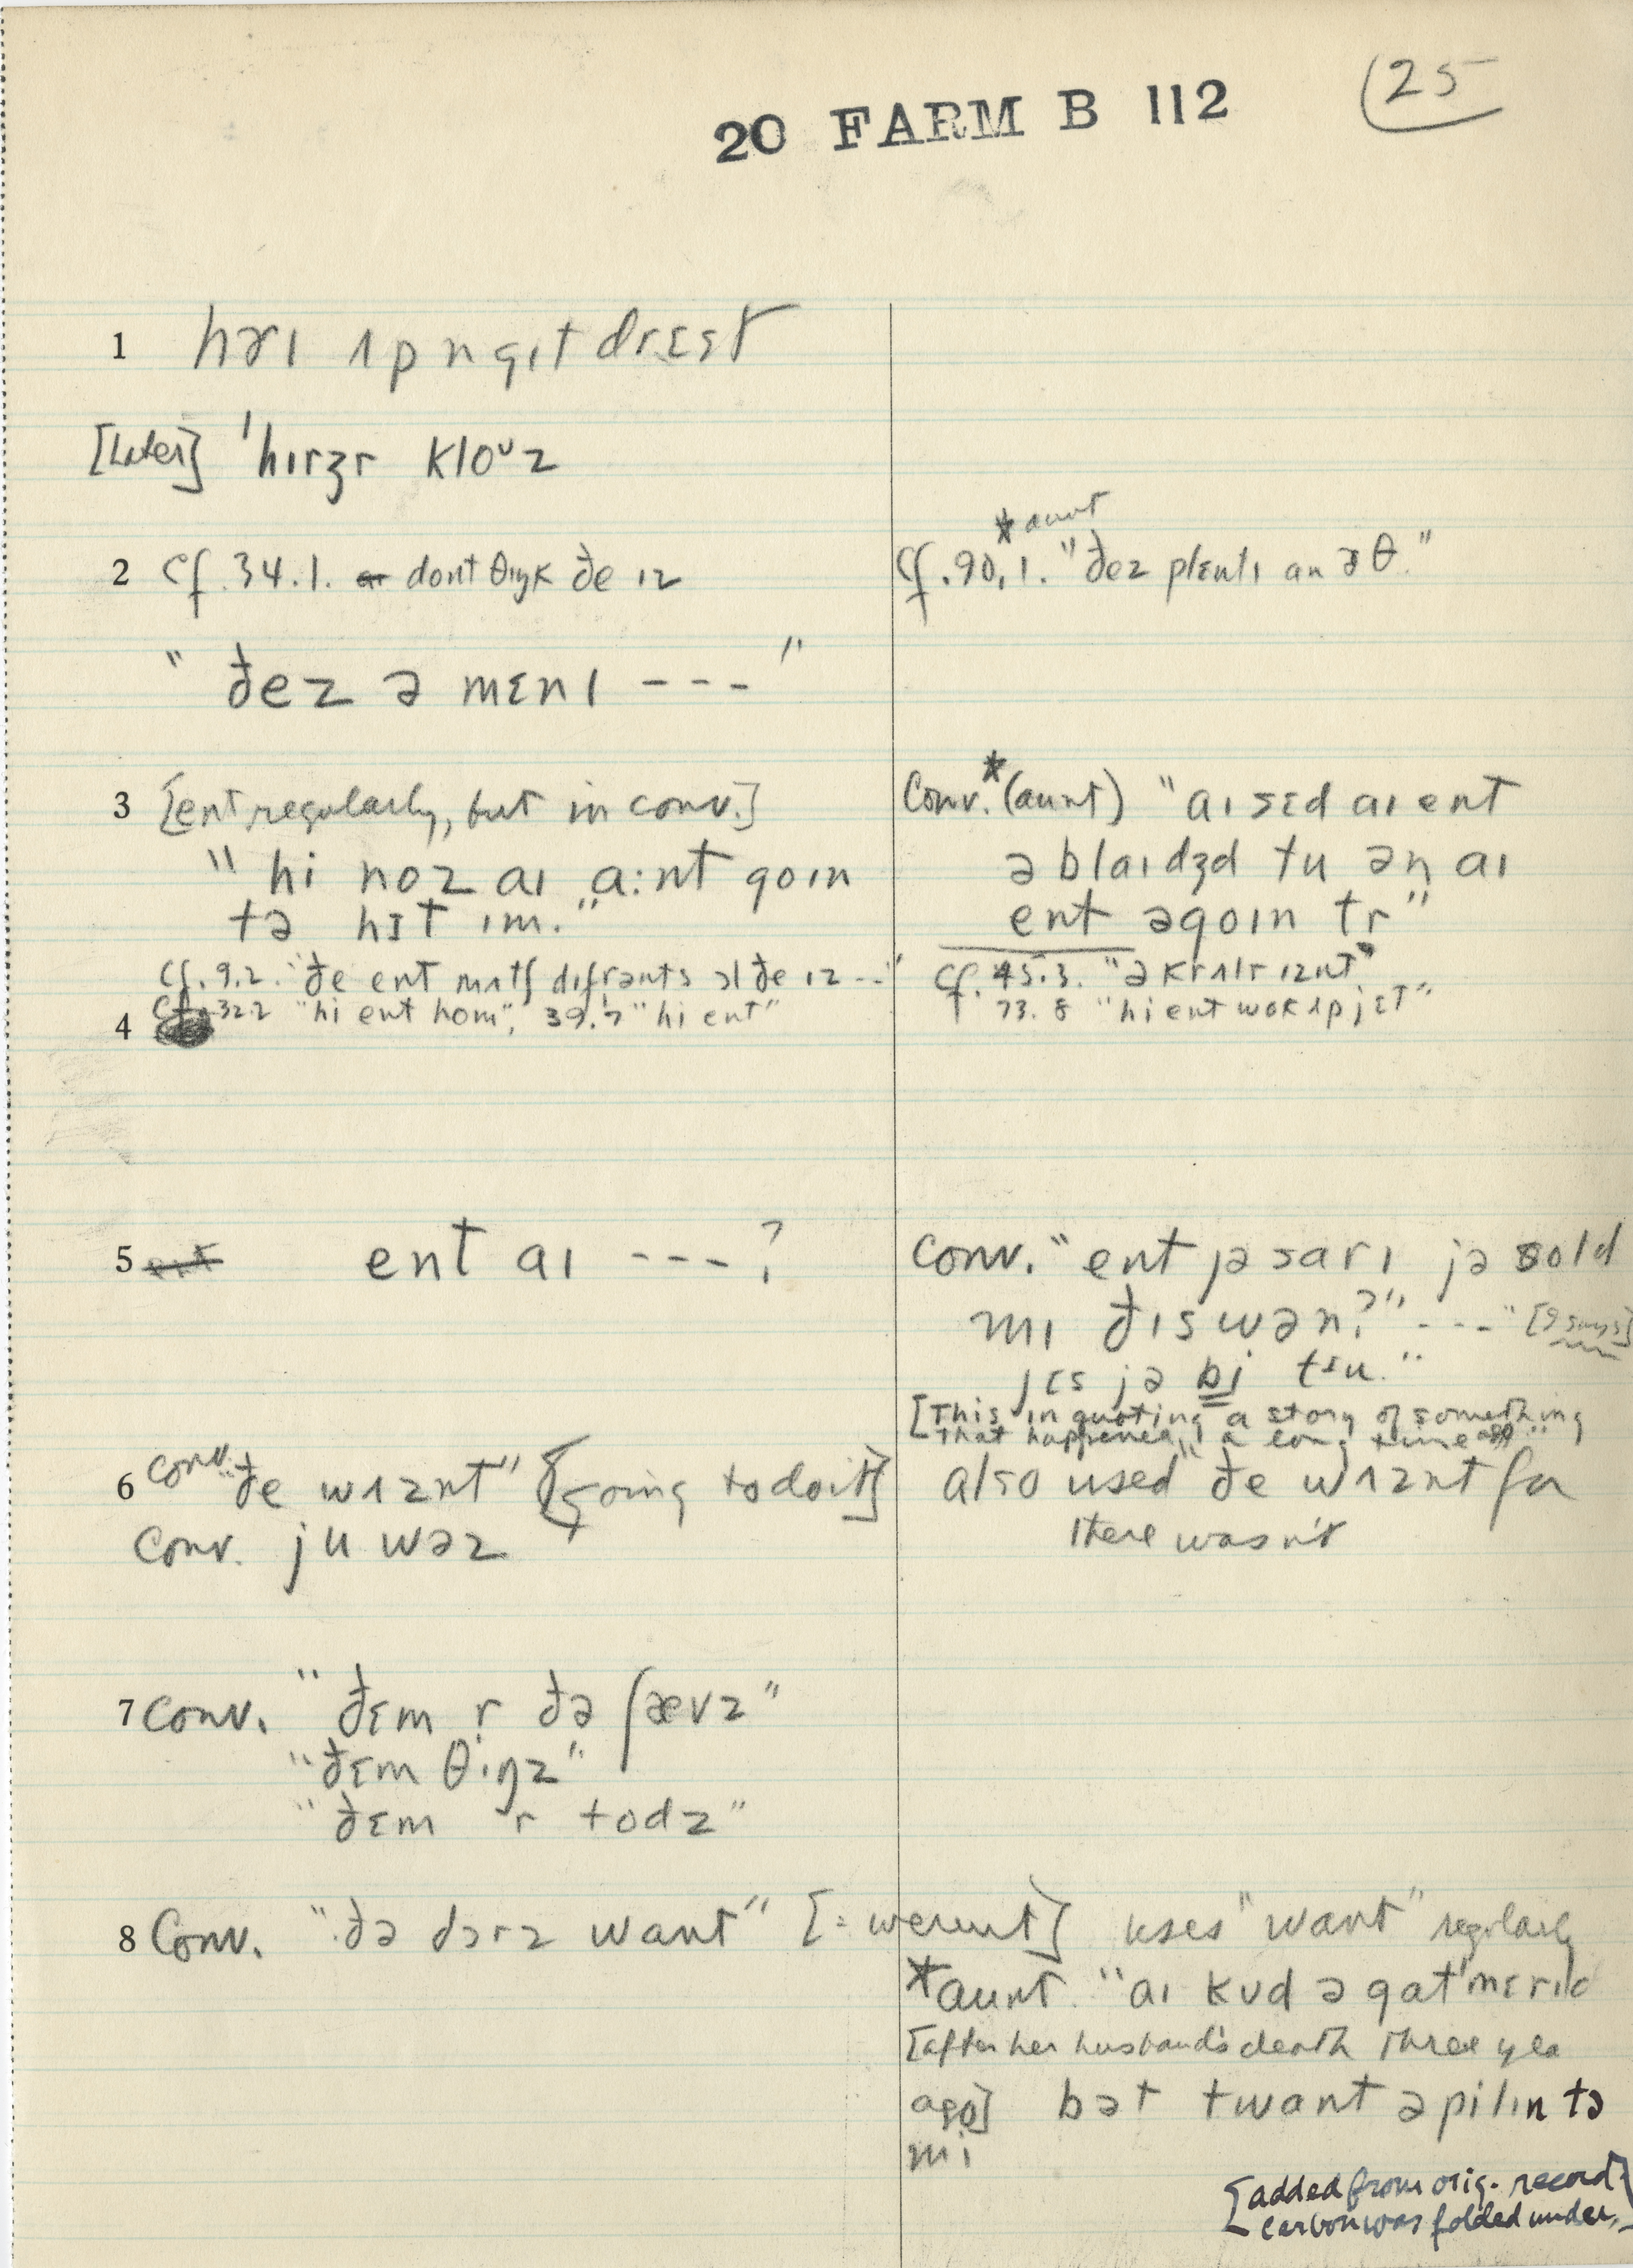 20 FARM B 112
25
1 hɝɪ ʌp n gɪt drɛst
[Later] 'hɪrzr kloᵘz
2 Cf. 34.1. dont θɪŋk ðe ɪz
"ðez ə mɛnɪ ---"
*aunt
Cf. 90.1. "ðez plɛntɪ an ɝθ."
3 [ent regularly, but in conv.]
"hi noz aɪ a:nt goɪn
tə hɪt ɪm."
Cf. 9.2. "ðe ent mʌtʃ difrənts ɔl ðe ɪz --"
Cf. 32.2 "hi ent hom", 39.7 "hi ent"
Conv.* (aunt) "aɪ sɛd aɪ ent
əblaɪdʒd tu ən aɪ
ent əgoɪn tr"
Cf. 45.3. "ə krʌlr ɪznt"
73.8 "hi ent wok ʌp jɛt"
4
5 ent aɪ ---?
Conv. "ent jə sarɪ jə sold
mɪ ðɪs wən?" --- "[? says]
jɛs jə bɪ tɪu."
[This in quoting a story of something
that happened a long time ago]
6 conv. "ðe wʌznt" [going to do it]
Conv. ju wəz
also used "ðe wʌznt for
there wasn't
7 Conv. "ðɛm r ðə ʃævz"
"ðɛm θɪŋz"
"ðɛm r todz"
8 Conv. "ðə dɔrz want" [= weren't] uses "want" regularly
*aunt. "aɪ kʊd ə gat 'mɛrɪd
[after her husband's death three yea
ago] bət twant əpilɪn tə
mi
[added from orig. record
carbon was folded under.]